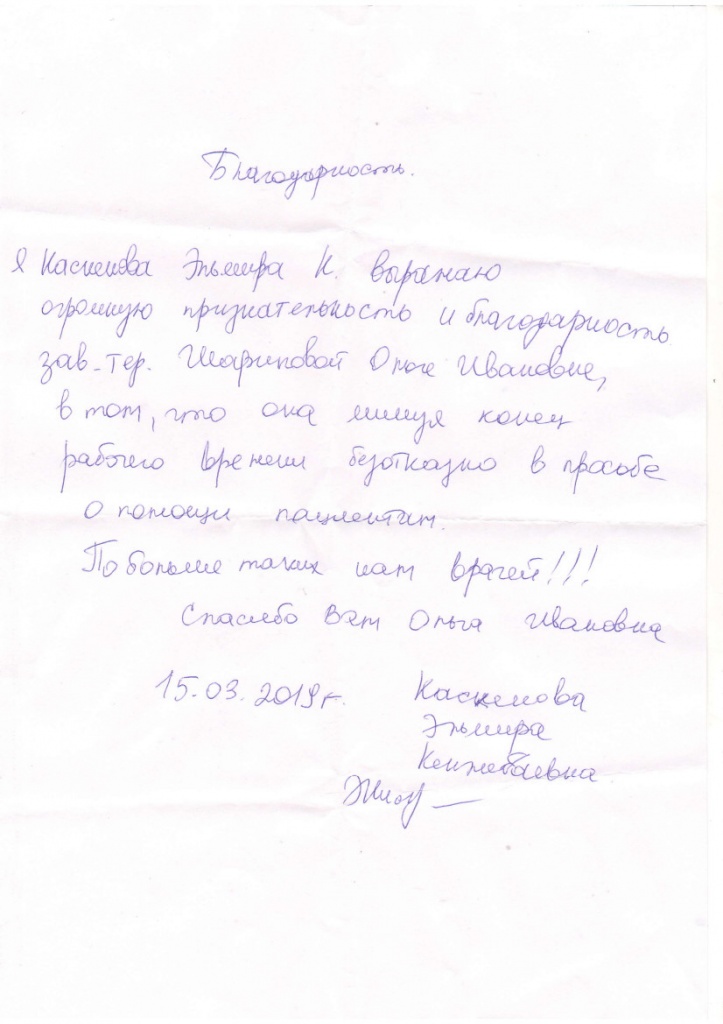 Благодарность.
Я Каскенова Эльмира К. выражаю
огромную признательность и благодарность
зав-тер. Шариповой Ольге Ивановне,
в том, что она минуя конец
рабочего времени безотказно в прозбе
о помощи пациентам.
Побольше таких нам врачей!!!
Спасибо Вам Ольга Ивановна
15.03.2019г. Каскенова
Эльмира
Кенжебаевна